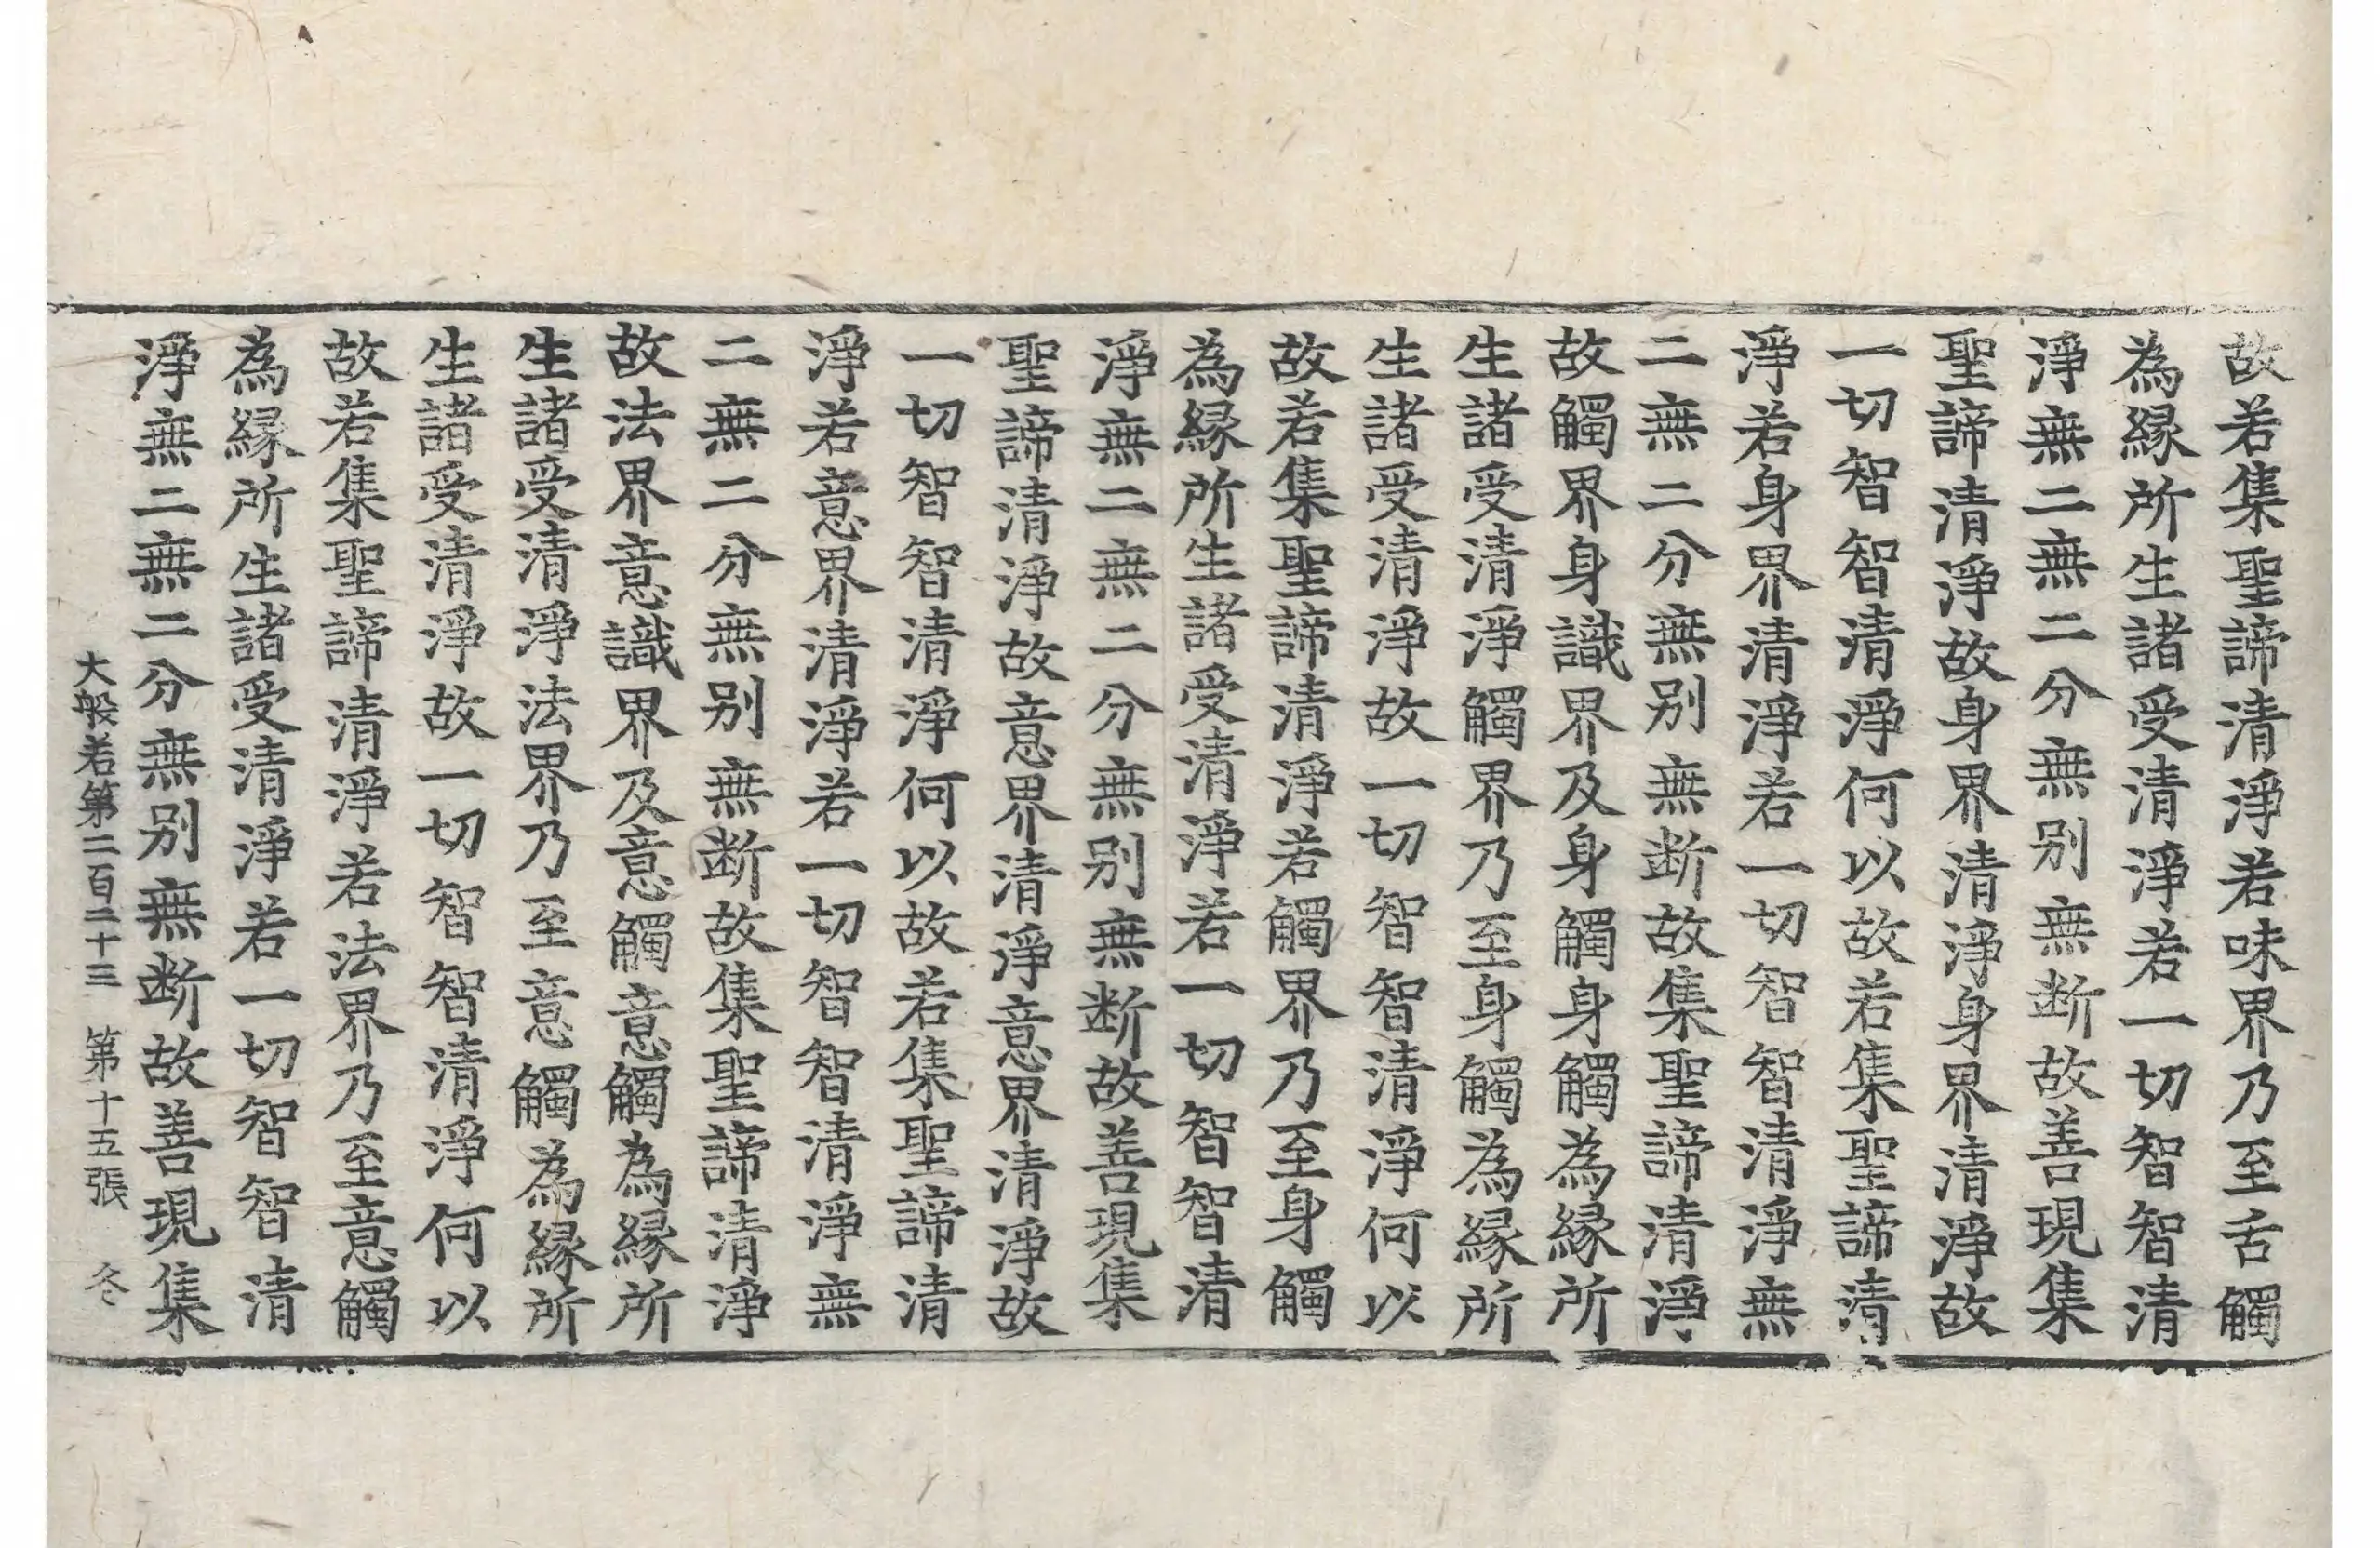 故若集聖諦清淨若味界乃至舌觸
為縁所生諸受清淨若一切智智清
淨無二無二分無别無断故善現集
聖諦清淨故身界清淨身界清淨故
一切智智清淨何以故若集聖諦清
淨若身界清淨若一切智智清淨無
二無二分無别無断故集聖諦清淨
故觸界身識界及身觸身觸為縁所
生諸受清淨觸界乃至身觸為縁所
生諸受清淨故一切智智清淨何以
故若集聖諦清淨若觸界乃至身觸
為縁所生諸受清淨若一切智智清
淨無二無二分無别無断故善現集
聖諦清淨故意界清淨意界清淨故
一切智智清淨何以故若集聖諦清
淨若意界清淨若一切智智清淨無
二無二分無别無断故集聖諦清淨
故法界意識界及意觸意觸為縁所
生諸受清淨法界乃至意觸為縁所
生諸受清淨故一切智智清淨何以
故若集聖諦清淨若法界乃至意觸
為縁所生諸受清淨若一切智智清
淨無二無二分無别無断故善現集
大般若第二百二十三 第十五張 冬